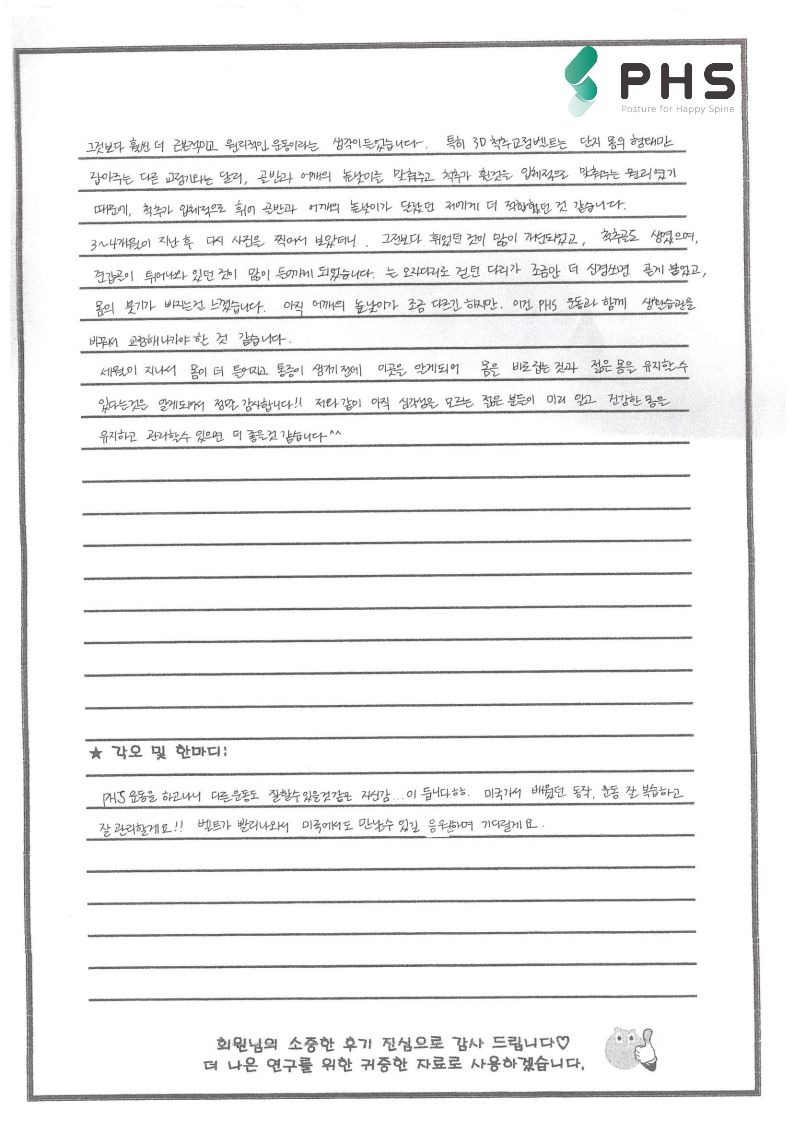 PHS
Posture for Happy Spine
그것보다 훨씬 더 근본적이고 원리적인 운동이라는 생각이 들었습니다. 특히 3D 척추교정벨트는 단지 몸의 형태만
잡아주는 다른 교정기와는 달리, 골반과 어깨의 높낮이를 맞춰주고 척추가 휜것을 입체적으로 맞춰주는 원리였기
때문에, 척추가 입체적으로 휘어 골반과 어깨의 높낮이가 달랐던 저에게 더 적합했던 것 같습니다.
3~4개월이 지난 후 다시 사진을 찍어서 보았더니, 그전보다 휘었던 것이 많이 개선되었고, 척추골도 생겼으며,
견갑골이 튀어나와 있던 것이 많이 들어가게 되었습니다. 는 오자다리로 걷던 다리가 조금만 더 신경쓰면 곧게 붙었고,
몸의 붓기가 빠지는건 느꼈습니다. 아직 어깨의 높낮이가 조금 다르긴 하지만. 이건 PHS 운동과 함께 생활습관을
바꿔서 교정해나가야 한 것 같습니다.
세월이 지나서 몸이 더 틀어지고 통증이 생기기 전에 이곳을 알게되어 몸을 바로잡는 것과 젊은 몸을 유지할 수
있다는것을 알게되어서 정말 감사합니다!! 저와 같이 아직 심각성을 모르는 젊은 분들이 미리 알고 건강한 몸을
유지하고 관리할수 있으면 더 좋을것 같습니다^^
★ 각오 및 한마디:
PHS 운동을 하고나니 다른운동도 잘할수있을것같은 자신감...이 듭니다ㅎㅎ. 미국가서 배웠던 동작, 운동 잘 복습하고
잘 관리할게요!! 벨트가 빨리나와서 미국에서도 만날수 있길 응원하며 기다릴게요.
회원님의 소중한 후기 진심으로 감사 드립니다♡
더 나은 연구를 위한 귀중한 자료로 사용하겠습니다.